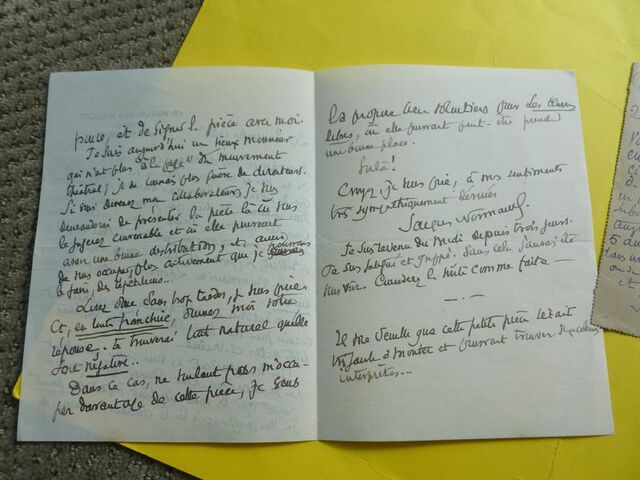 pièce, et de signer la pièce avec moi.
Je suis aujourd'hui un vieux Monsieur
qui n'est plus "à la page" du mouvement
théâtral; je ne connais plus guère de directeurs.
Si vous devenez mon collaborateur, je vous
demanderai de présenter la pièce là où vous
le jugerez convenable et où elle pourrait
avoir une bonne distribution, et aussi
de vous occuper plus activement que je pourrais
le faire, des répétitions...
Lisez donc sans trop tarder, je vous prie
Et, en toute franchise, donnez moi votre
réponse. Je trouverai tout naturel qu'elle
soit négative..
Dans ce cas, ne voulant pas m'occu-
per davantage de cette pièce, je vous
la propose bien volontiers pour Les
libres, où elle pourrait peut-être prendre
une bonne place.
Voilà!
Croyez, je vous prie, à mes sentiments
très sympathiquement dévoués
Jacques Normand.
Je suis revenu du Midi depuis trois jours.
Je suis fatigué et grippé. Sans cela j'aurais été
vous voir. Considérez la visite comme faite —
— . —
Il me semble que cette petite pièce serait
très facile à monter et pourrait trouver
interprètes...